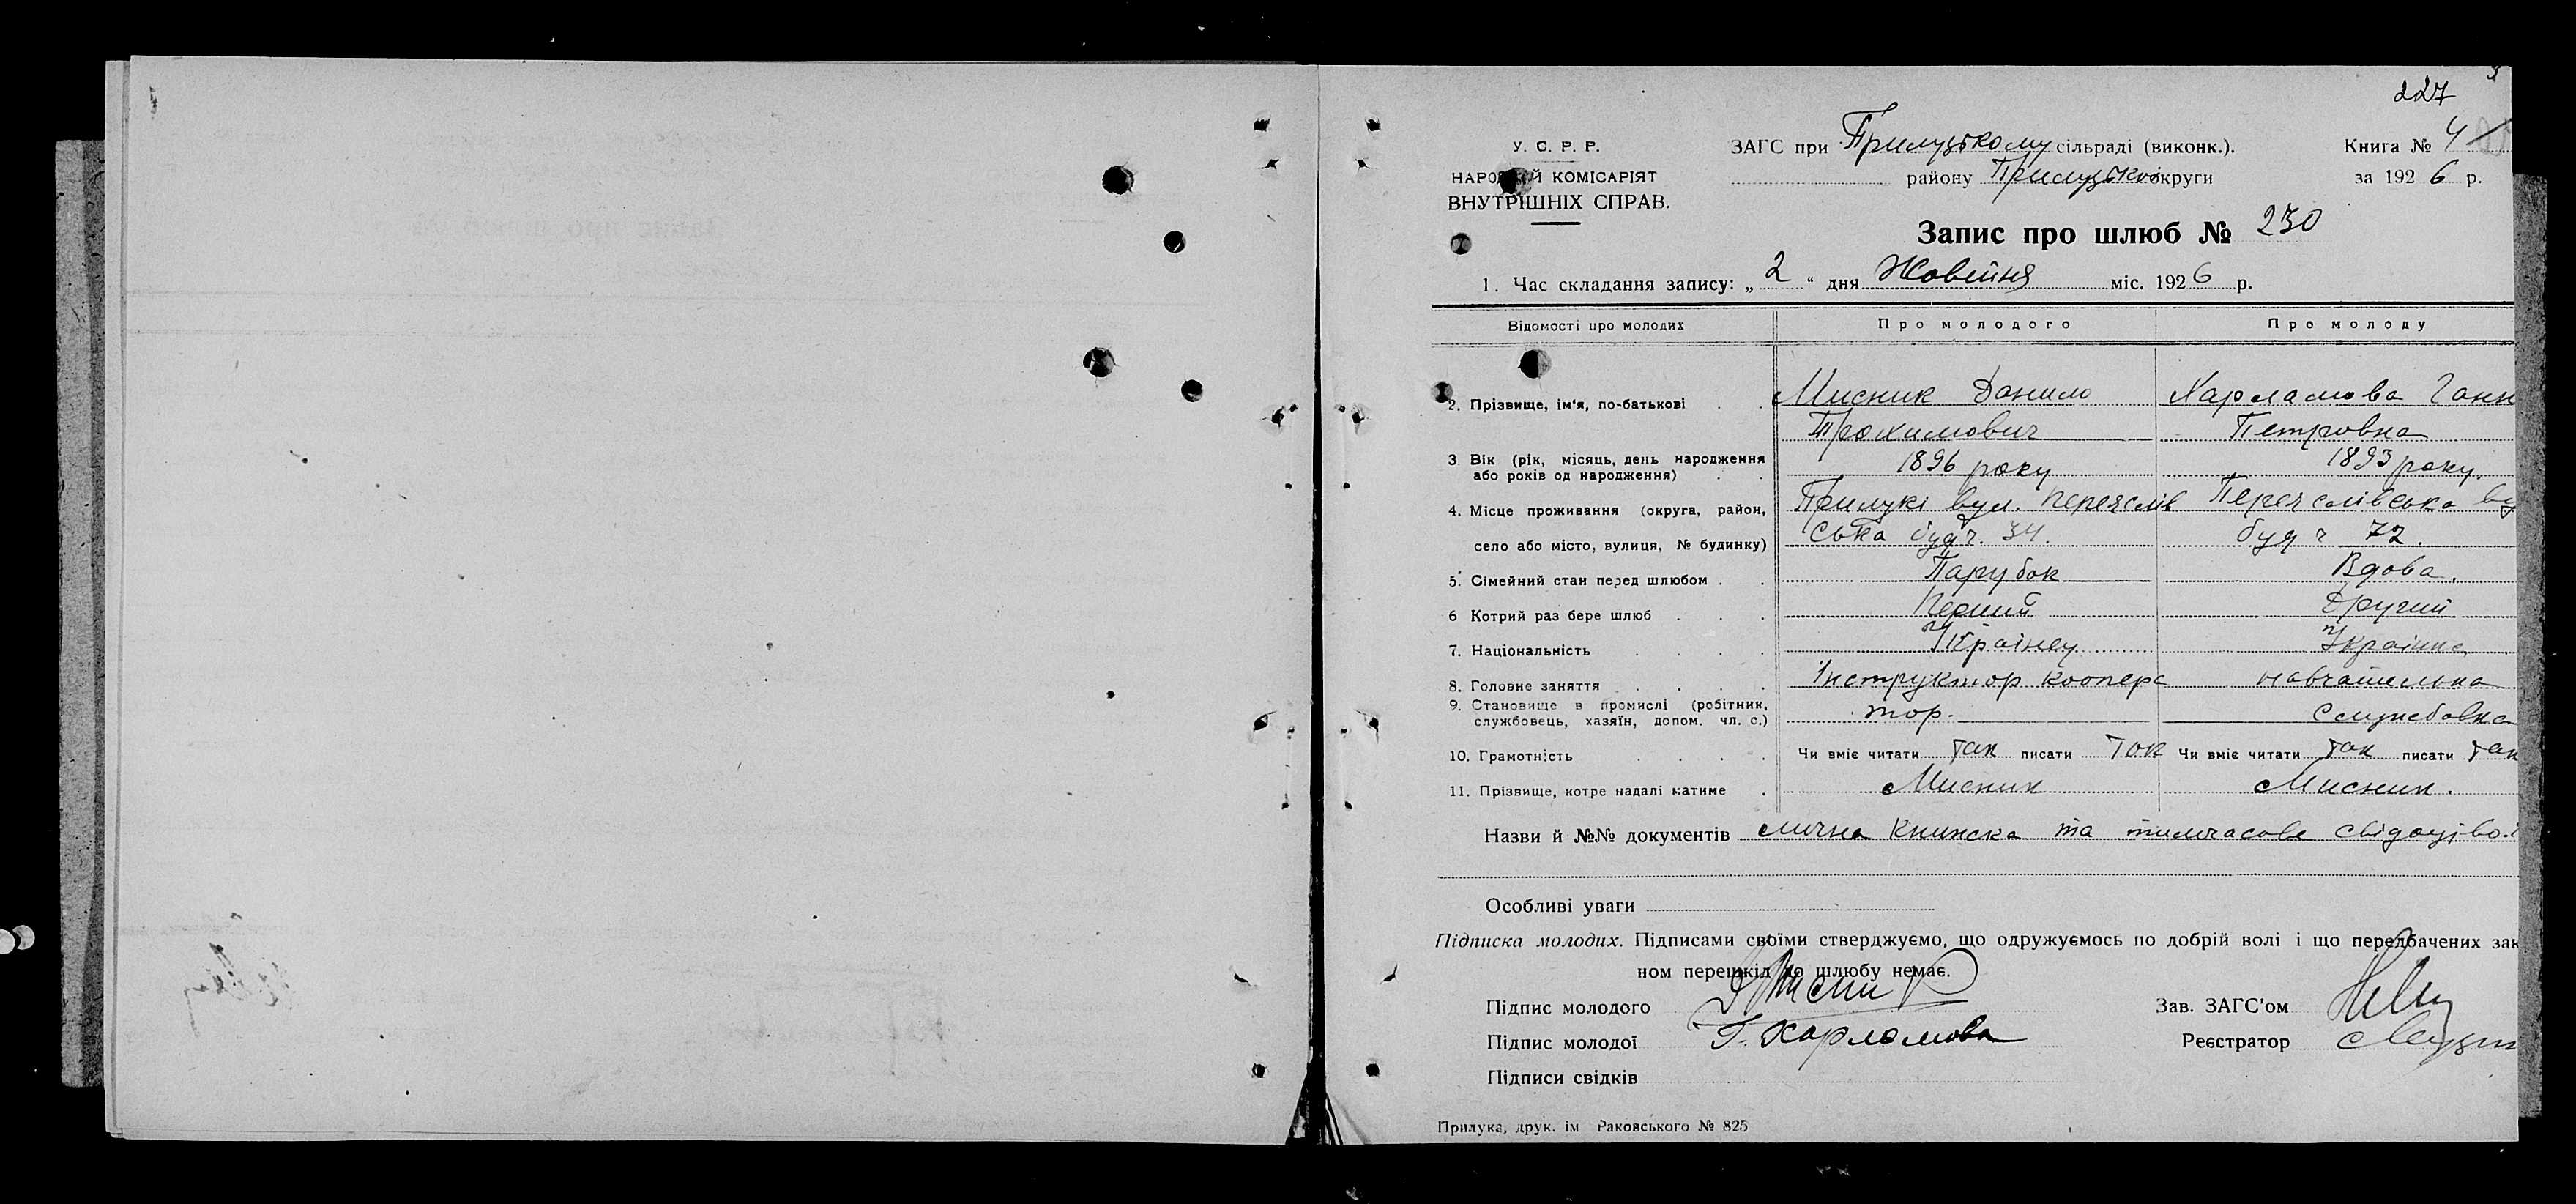 227
У. С. Р. Р.
НАРОДНІЙ КОМІСАРІЯТ
ВНУТРІШНІХ СПРАВ.
ЗАГС при Прилуцькому сільраді (виконк.).
району Прилуцької округи
Книга № 4
за 1926 р.
Запис про шлюб № 230
1. Час складання запису: „2“ дня Жовтня міс. 1926 р.
Відомості про молодих Про молодого Про молоду
2. Прізвище, ім'я, по-батькові Мисник Данило Харламова Ганн
Трохимович Петровна
3. Вік (рік, місяць, день народження 1896 року 1893 року.
або років од народження)
4. Місце проживання (округа, район, Прилукі вул. Переяслів Переяслівська ву
село або місто, вулиця, № будинку) ська буд ч. 34. буд ч 72.
5. Сімейний стан перед шлюбом Парубок Вдова.
6 Котрий раз бере шлюб Перший Другий
7. Національність Українец Українка
8. Головне заняття Інструктор коопера навчителька
9. Становище в промислі (робітник, тор. Службовка
службовець, хазяїн, допом. чл. с.)
10. Грамотність Чи вміє читати так писати так Чи вміє читати так писати так
11. Прізвище, котре надалі матиме Мисник Мисник.
Назви й №№ документів лична книжка та тимчасове свідоцтво
Особливі уваги
Підписка молодих. Підписами своїми стверджуємо, що одружуємось по добрій волі і що передбачених зак
ном перешкід до шлюбу немає.
Підпис молодого Мисник
Зав. ЗАГС'ом
Підпис молодої Г. Харламова
Реєстратор
Підписи свідків
Прилука, друк. ім Раковського № 825